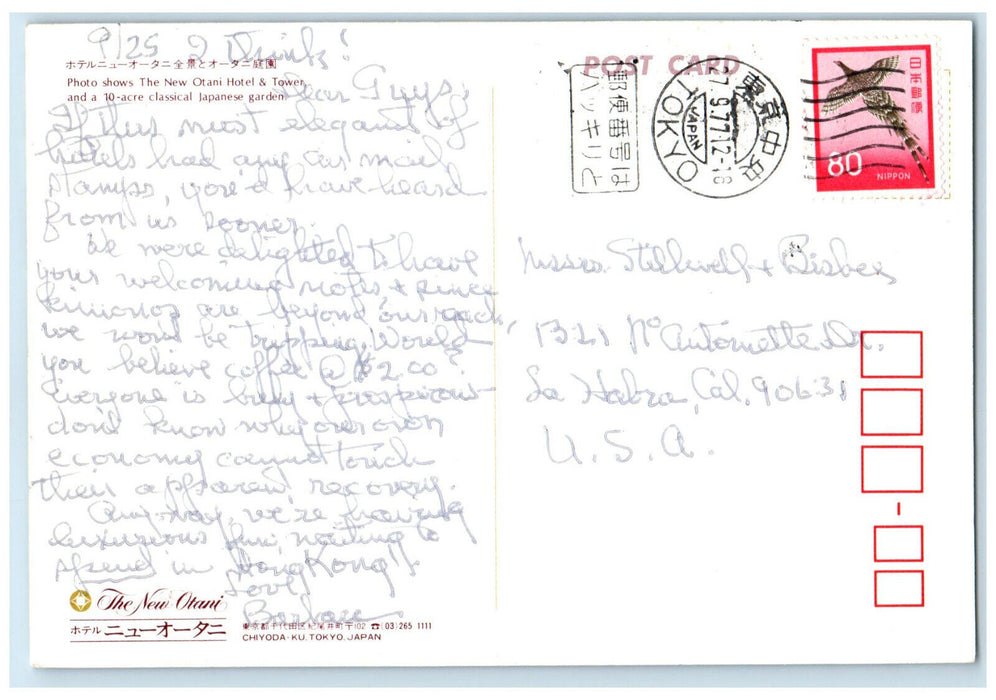 9/25 I think!
ホテルニューオータニ全景とオータニ庭園
Photo shows The New Otani Hotel & Tower,
and a 10-acre classical Japanese garden.
Dear Guys,
If this most elegant of
hotels had any air mail
stamps, you'd have heard
from us sooner.
We were delighted to have
your welcoming notes + since
kimonos are beyond our reach,
we won't be tripping. Would
you believe coffee @ $2.00?
Everyone is busy + prosperous
don't know why our own
economy cannot touch
their apparent recovery.
Anyway, we're having
luxurious fun, waiting to
spend in Hong Kong!
Love
Barbara
The New Otani
ホテル ニューオータニ
東京都千代田区紀尾井町〒102 ☎(03)265 1111
CHIYODA-KU, TOKYO, JAPAN
POST CARD
郵便番号は
ハッキリと
東京中央
27.9.77.12-18
JAPAN
TOKYO
日本郵便
80
NIPPON
Messrs. Stillwell + Bisbee
1321 Antoinette Dr.
La Habra, Cal. 90631
U. S. A.